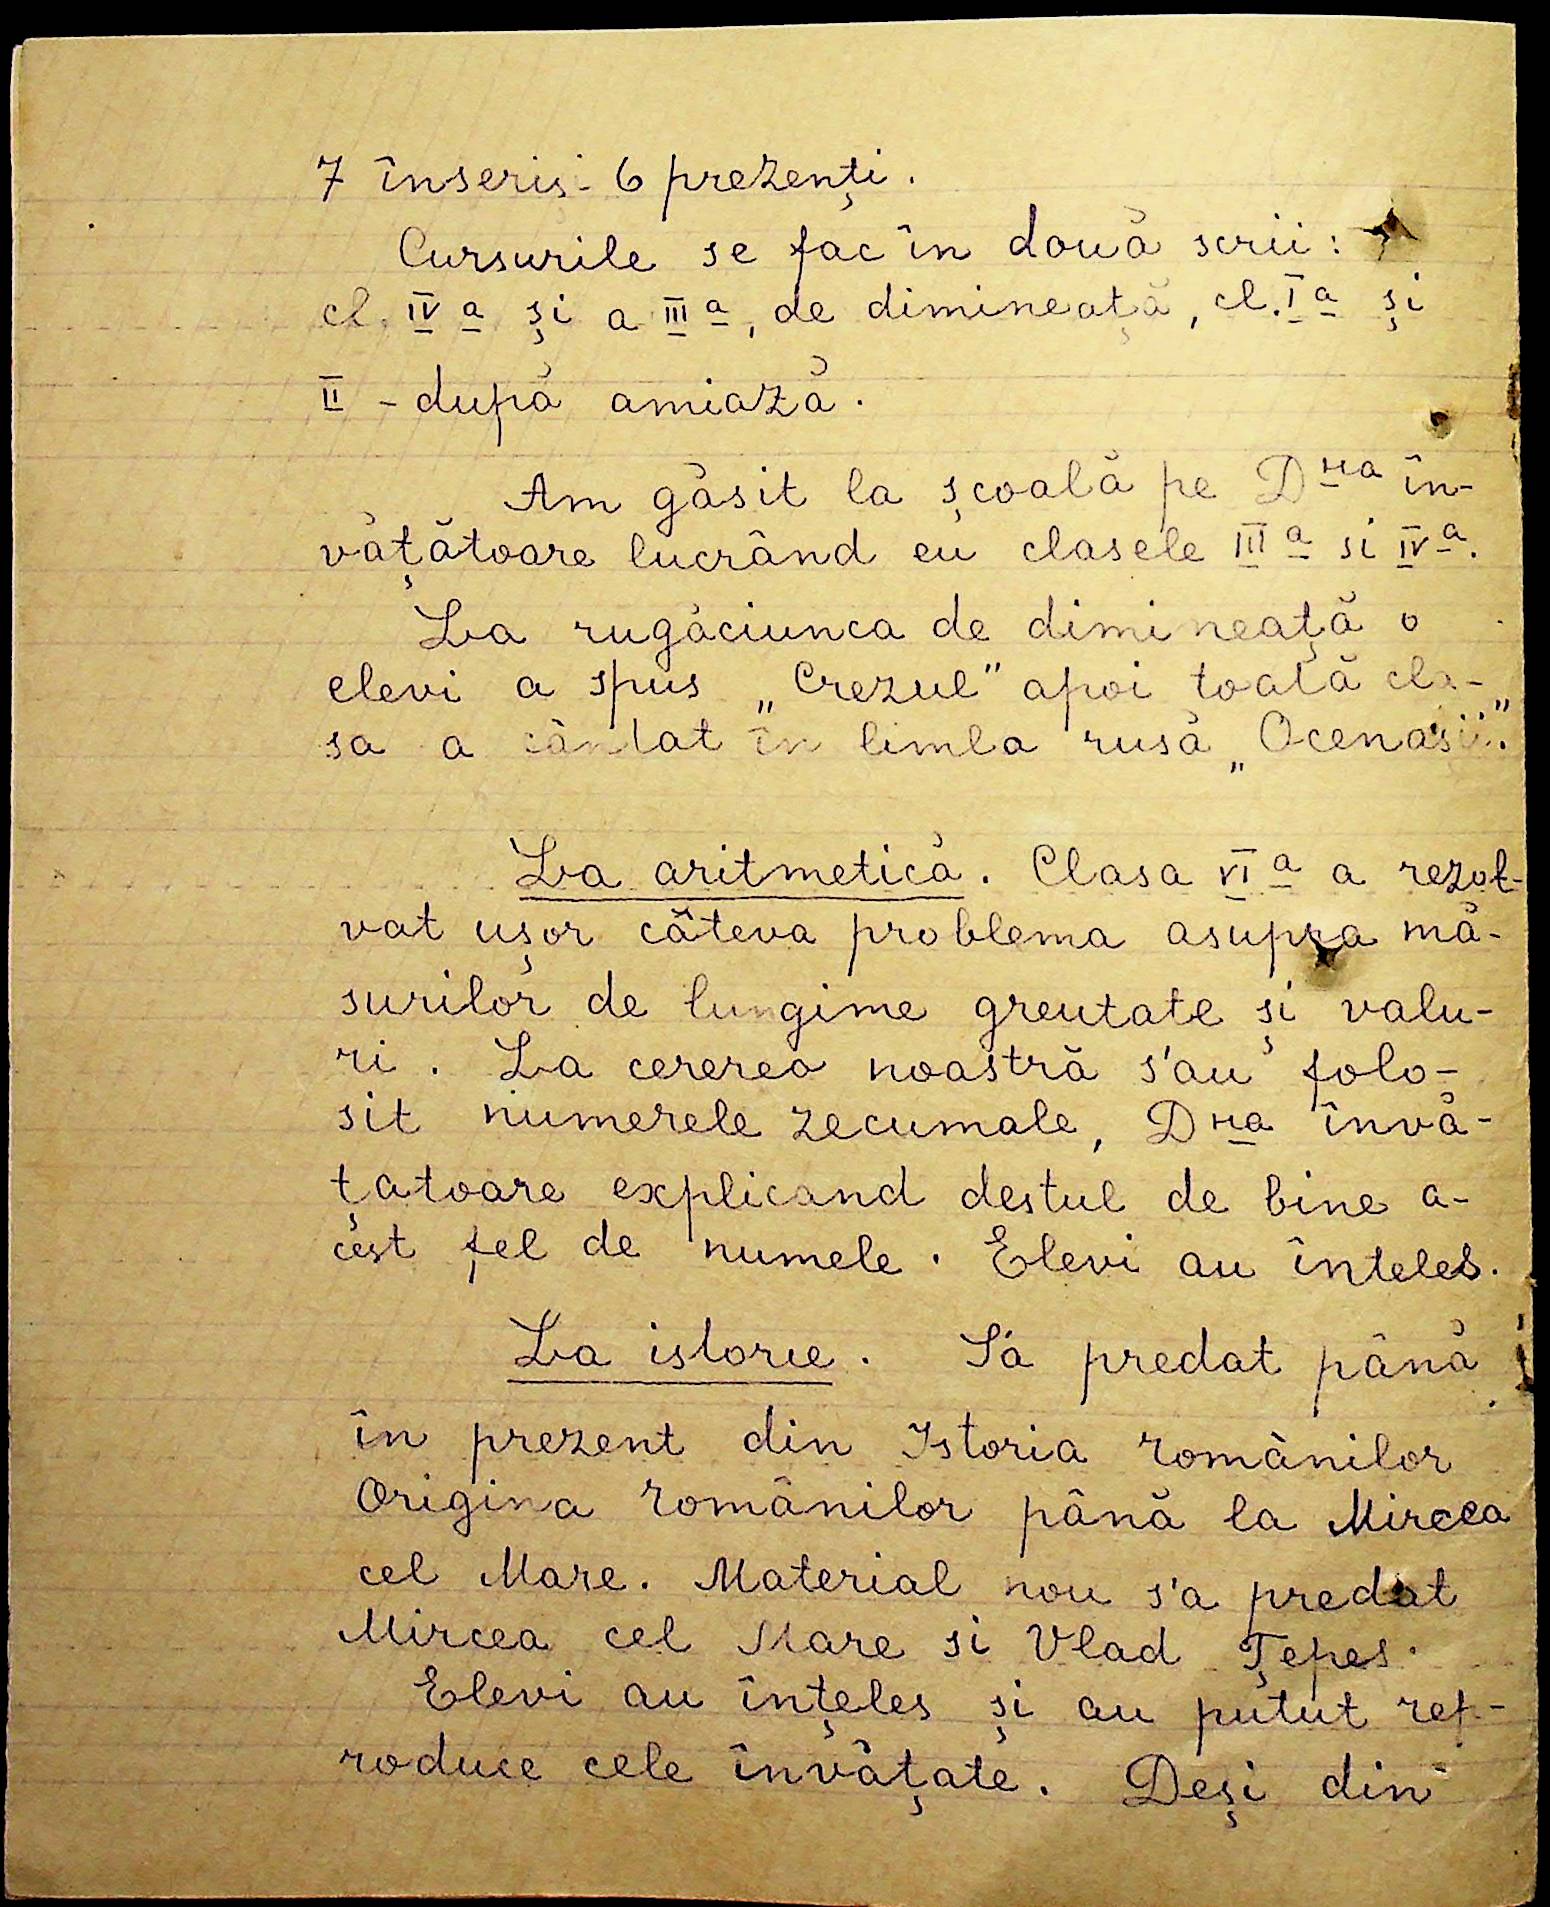 7 înseriși - 6 prezenți.
Cursurile se fac în două scrii:
cl. IV a și a III a, de dimineață, cl. I a și
II - după amiază.
Am găsit la școală pe Dna în-
vățătoare lucrând cu clasele III a si IV a.
La rugăciunea de dimineață o
elevi a spus „Crezul" apoi toată cla-
sa a cântat în limba rusă „Ocenașii".
La aritmetică. Clasa VI a a rezol-
vat ușor câteva problema asupra mă-
surilor de lungime greutate și valu-
ri. La cererea noastră s'au folo-
sit numerele zecumale, Dna învă-
țatoare explicand destul de bine a-
cest fel de numele. Elevi au înteles.
La istorie. S'a predat până
în prezent din Istoria românilor
Origina românilor până la Mircea
cel Mare. Material nou s'a predat
Mircea cel Mare si Vlad Țepes.
Elevi au înțeles și au putut rep-
roduce cele învățate. Deși din